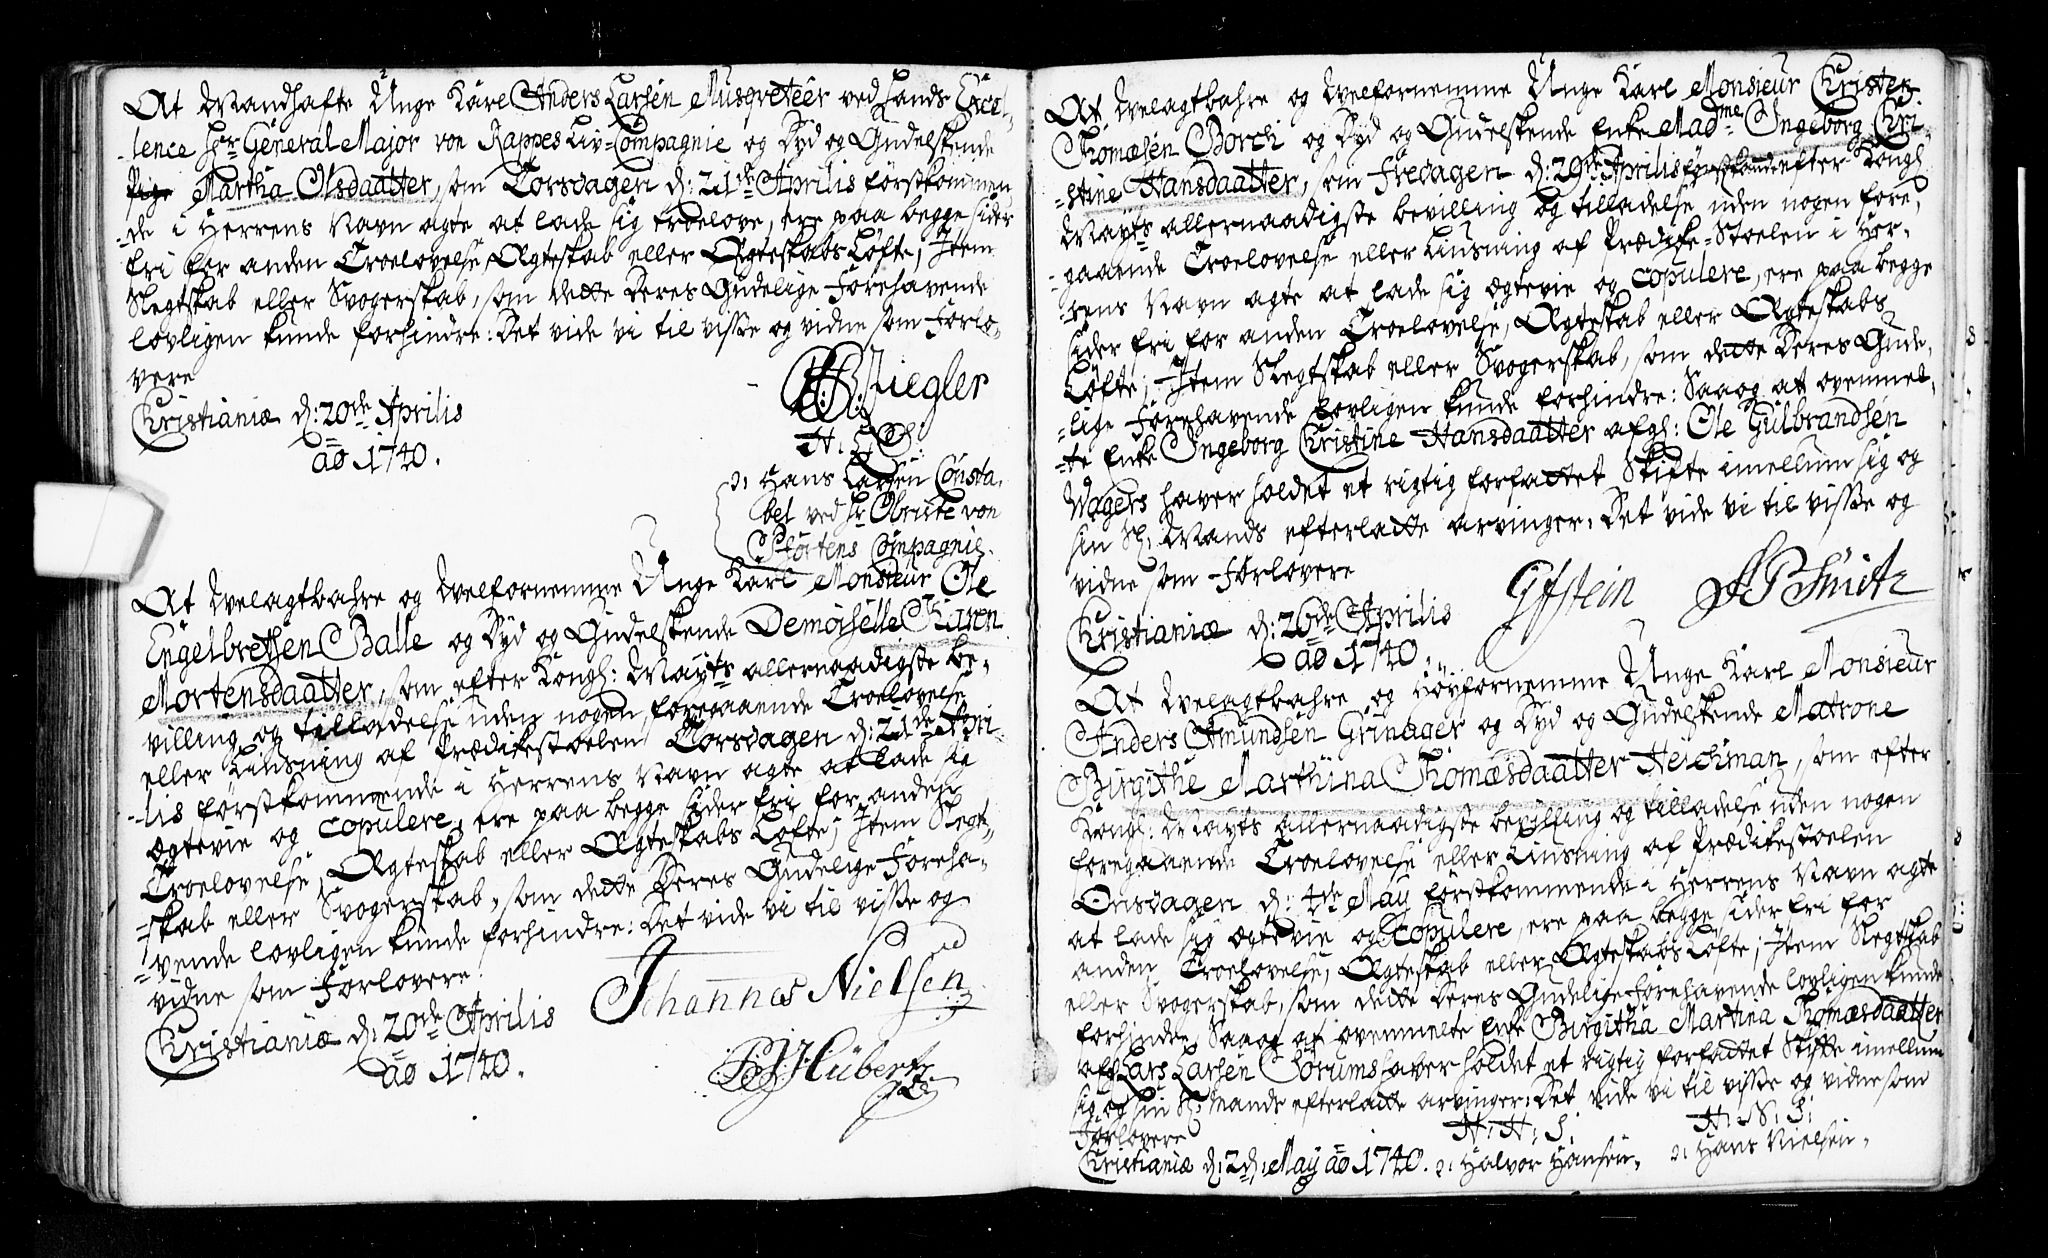 At Mandhafte Unge Karl Anders Larsen Musqveteer ved Hands Excel-
-lence Hr General Major von Kappes Liv-Compagnie og Dyd og Gudelskende
Pige Martha Olsdaatter, som Torsdagen d: 21de Aprilis førstkommen-
-de i Herrens Navn agte at lade sig troelove, ere paa begge sider
fri for anden Troelovelse, Ægteskab eller Ægteskabs Løfte; Item
Slegtskab eller Svogerskab, som dette deres Gudelige Forehavende
lovligen kunde forhindre: Det vide vi til visse og vidne som Forlo-
vere
Christianiæ d: 20de Aprilis
ao 1740.
Ziegler
H: L: S:
ɔ: Hans Larsen Consta-
bel ved Hr Obriste von
Støcktens Compagnie.
At Welagtbahre og Welfornemme Unge Karl Monsieur Ole
Engelbretsen Balle og Dyd og Gudelskende Demoiselle Karen
Mortensdaatter, som efter Kongl: Mayts allernaadigste be-
villing og tilladelse uden nogen foregaaende Troelovelse
eller Liusning af Prædikestoelen Torsdagen d: 21de Apri-
-lis førstkommende i Herrens Navn agte at lade sig
ægtevie og copulere, ere paa begge sider fri for anden
Troelovelse, Ægteskab eller Ægteskabs Løfte; Item Slegt-
-skab eller Svogerskab, som dette deres Gudelige Foreha-
-vende lovligen kunde forhindre: Det vide vi til visse og
vidne som Forlovere.
Christianiæ d: 20de Aprilis
ao 1740.
Johannes Nielsen
Hübert
At Welagtbahre og Welfornemme Unge Karl Monsieur Christen
Thomæsen Borch og Dyd og Gudelskende Enke Madme Ingeborg Chri-
-stine Hansdaatter, som Fredagen d: 29de Aprilis førstkom: efter Kongl
Mayts allernaadigste bevilling og tilladelse uden nogen fore-
-gaaende Troelovelse eller Liusning af Prædike-Stoelen i Her-
-rens Navn agte at lade sig ægtevie og copulere, ere paa begge
sider fri for anden Troelovelse, Ægteskab eller Ægteskabs
Løfte; Item Slegtskab eller Svogerskab, som dette deres Gude-
-lige Forehavende lovligen kunde forhindre: Saaog at ovenmel-
-te Enke Ingeborg Christine Hansdaatter afgl: Ole Gulbrandsen
Wogers haver holdet et rigtig forfattet Skifte imellum sig og
sin Sl: Mands efterladte arvinger: Det vide vi til visse og
vidne som Forlovere
Christianiæ d: 26de Aprilis
ao 1740.
Gfstein
Smith
At Welagtbahre og Höyfornemme Unge Karl Monsieur
Anders Amundsen Grinager og Dyd og Gudelskende Matrone
Birgithe Marthina Thomæsdaatter Heichman, som efter
Kongl: Mayts allernaadigste bevilling og tilladelse uden nogen
foregaaende Troelovelse eller Liusning af Prædikestoelen
Onsdagen d: 4de May førstkommende i Herrens Navn agte
at lade sig ægtevie og copulere, ere paa begge sider fri for
anden Troelovelse, Ægteskab eller Ægteskabs Løfte; Item Slegtskab
eller Svogerskab, som dette deres Gudelige Forehavende lovligen kunde
forhindre, Saaog at ovenmelte Enke Birgitha Martina Thomæsdaatter
afgl: Lars Larsen Sörums haver holdet et rigtig forfattet Skifte imellum
sig og sin Sl: Mands efterladte arvinger: Det vide vi til visse og vidne som
Forlovere
H: H: S:
H: N: S:
Christianiæ d: 2d: May ao 1740. ɔ: Halvor Hansen. ɔ: Hans Nielsen.